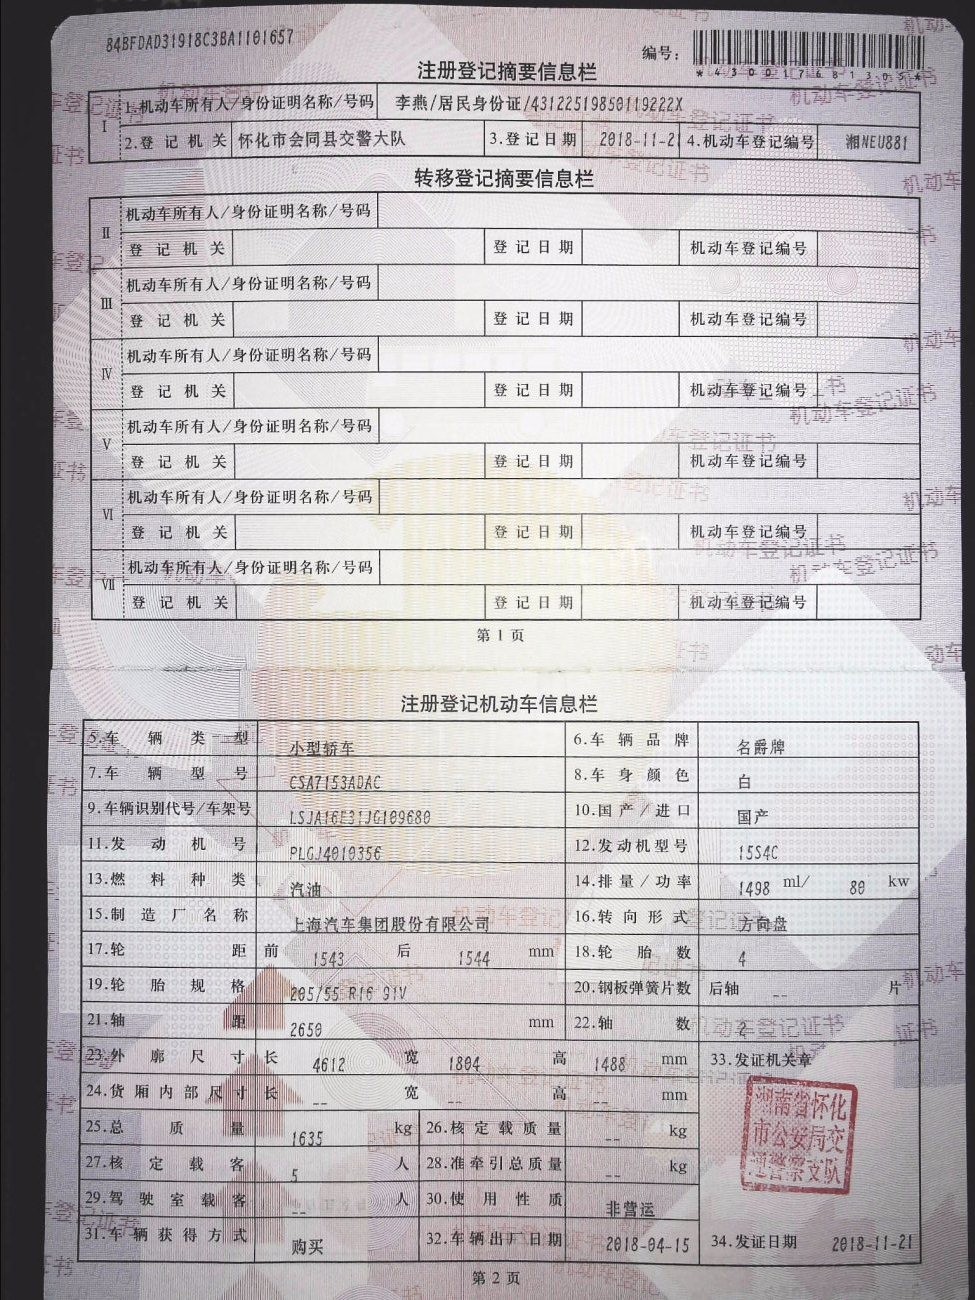 84BFDAD31918C3BA1101657
编号：
*430017681305*
注册登记摘要信息栏
I 1.机动车所有人/身份证明名称/号码 李燕/居民身份证/43122519850119222X
2.登记机关 怀化市会同县交警大队 3.登记日期 2018-11-21 4.机动车登记编号 湘NEU881
转移登记摘要信息栏
II 机动车所有人/身份证明名称/号码
登记机关 登记日期 机动车登记编号
III 机动车所有人/身份证明名称/号码
登记机关 登记日期 机动车登记编号
IV 机动车所有人/身份证明名称/号码
登记机关 登记日期 机动车登记编号
V 机动车所有人/身份证明名称/号码
登记机关 登记日期 机动车登记编号
VI 机动车所有人/身份证明名称/号码
登记机关 登记日期 机动车登记编号
VII 机动车所有人/身份证明名称/号码
登记机关 登记日期 机动车登记编号
第1页
注册登记机动车信息栏
5.车辆类型 小型轿车 6.车辆品牌 名爵牌
7.车辆型号 CSA7153ADAC 8.车身颜色 白
9.车辆识别代号/车架号 LSJA16E31JG109680 10.国产/进口 国产
11.发动机号 PLGJ4010356 12.发动机型号 15S4C
13.燃料种类 汽油 14.排量/功率 1498 ml/ 80 kw
15.制造厂名称 上海汽车集团股份有限公司 16.转向形式 方向盘
17.轮距 前 1543 后 1544 mm 18.轮胎数 4
19.轮胎规格 205/55 R16 91V 20.钢板弹簧片数 后轴 -- 片
21.轴距 2650 mm 22.轴数 2
23.外廓尺寸 长 4612 宽 1804 高 1488 mm 33.发证机关章
24.货厢内部尺寸 长 -- 宽 -- 高 -- mm
25.总质量 1635 kg 26.核定载质量 -- kg
湖南省怀化
市公安局交
通警察支队
27.核定载客 5 人 28.准牵引总质量 -- kg
29.驾驶室载客 -- 人 30.使用性质 非营运
31.车辆获得方式 购买 32.车辆出厂日期 2018-04-15 34.发证日期 2018-11-21
第2页